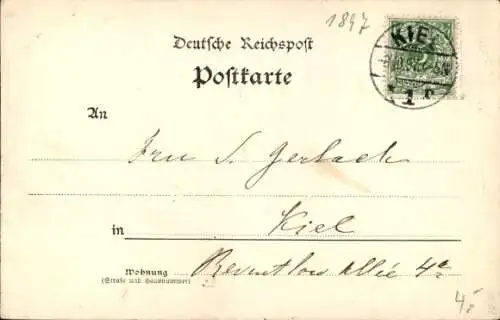 1897
Deutsche Reichspost
Postkarte
KIEL
1
An
Frau S. Gerlach
in Kiel
Wohnung
(Straße und Hausnummer)
Reventlow Allée 4a
4.-